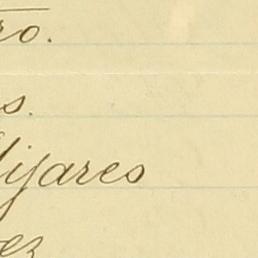 ro.
s.
Mijares
ez